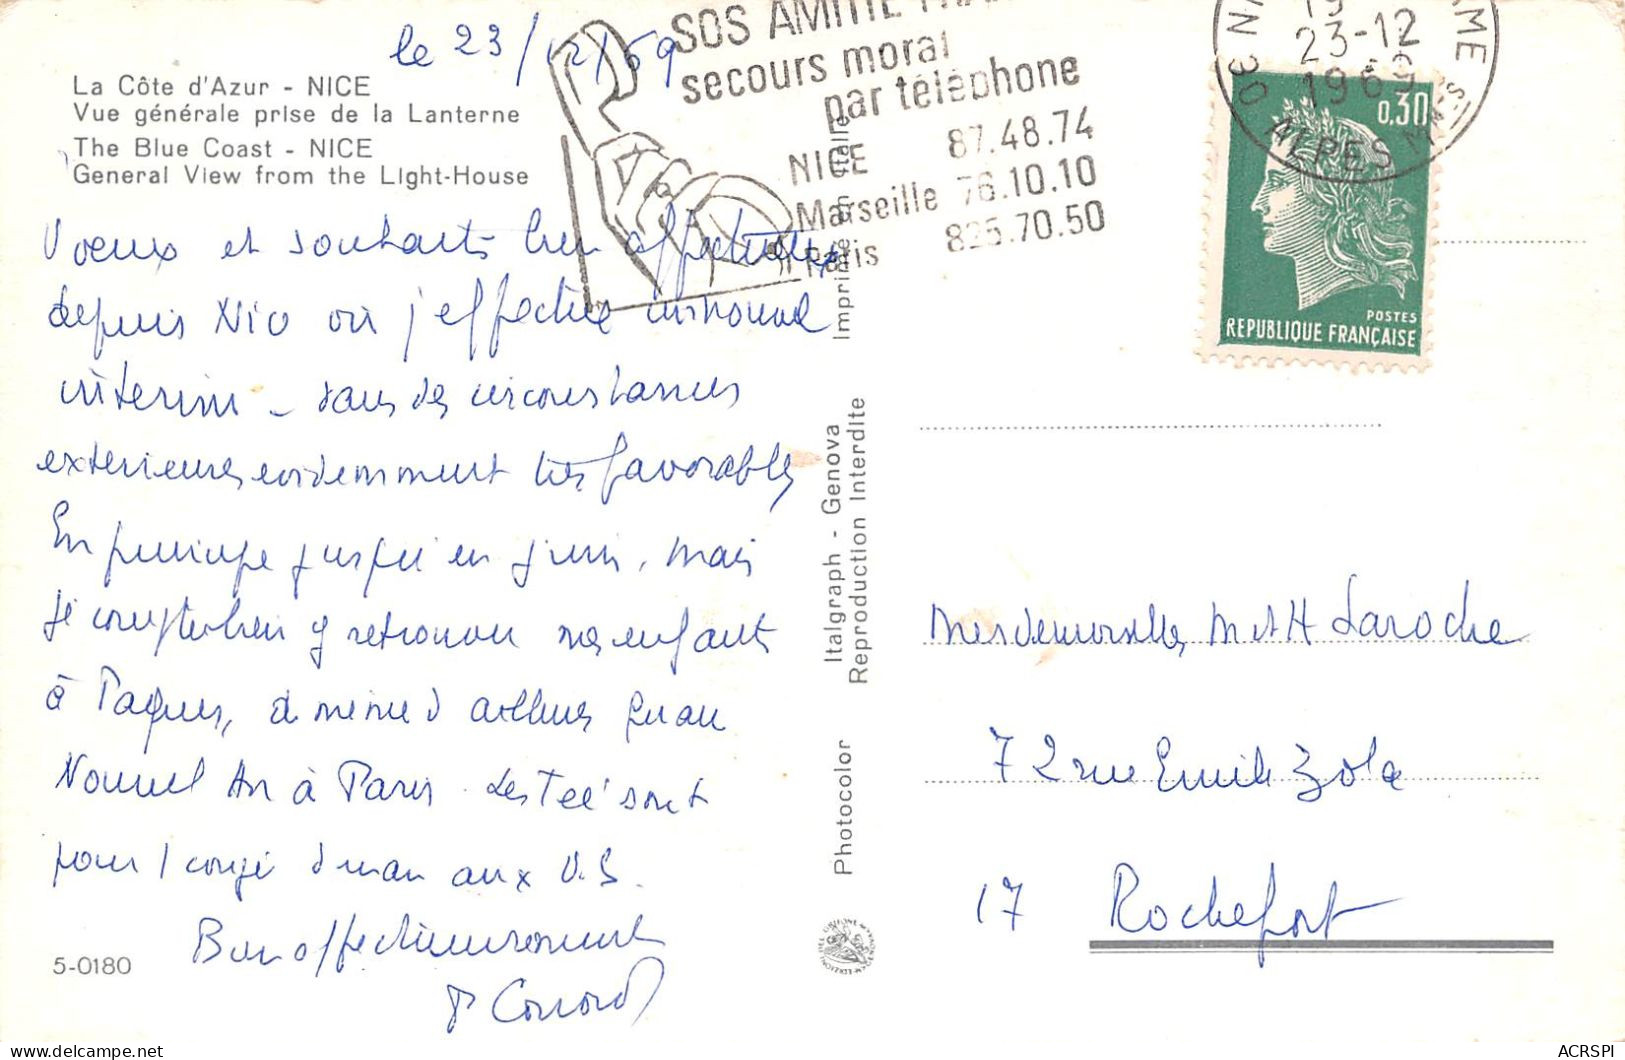 le 23/12/69
La Côte d'Azur - NICE
Vue générale prise de la Lanterne
The Blue Coast - NICE
General View from the Light-House
SOS AMITIE FRA
secours moral
par téléphone
NICE 87.48.74
Marseille 76.10.10
Paris 825.70.50
23-12
1969
ALPES
0,30
POSTES
REPUBLIQUE FRANÇAISE
Voeux et souhaits bien affectueux
depuis Nice où j'effectue un nouvel
interim - dans des circonstances
exterieures evidemment très favorables
En principe jusqu'en juin, mais
je compte bien y retrouver mes enfants
à Paques, de même d'ailleurs qu'au
Nouvel An à Paris. sont
pour 1 congé d'1 an aux U.S.
Bien affectueusement
Conrard
5-0180
Photocolor Italgraph - Genova Imprimé en Italie
Reproduction Interdite
Mesdemoiselles M et H Laroche
72 rue Emile Zola
17 Rochefort
ACRSPI
delcampe.net